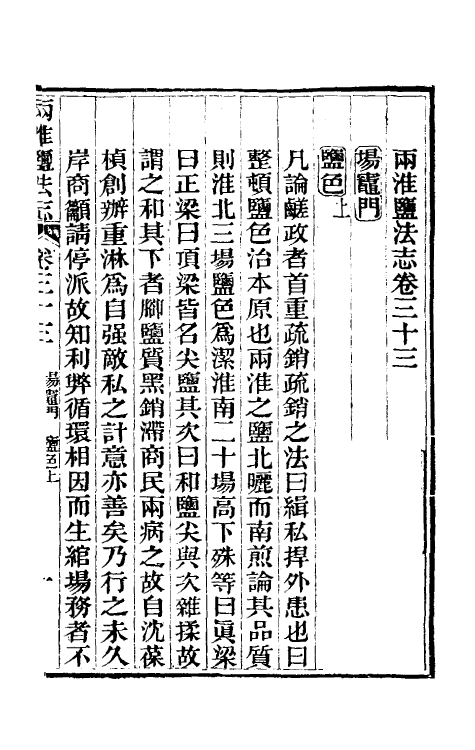 兩淮鹽法志卷三十三
場竈門
鹽色上
凡論鹺政者首重疏銷疏銷之法曰緝私捍外患也曰
整頓鹽色治本原也兩淮之鹽北曬而南煎論其品質
則淮北三場鹽色爲潔淮南二十場高下殊等曰眞梁
曰正梁曰頂梁皆名尖鹽其次曰和鹽尖與次雜揉故
謂之和其下者腳鹽質黑銷滯商民兩病之故自沈葆
楨創辦重淋爲自强敵私之計意亦善矣乃行之未久
岸商籲請停派故知利弊循環相因而生綰場務者不
兩淮鹽法志 卷三十三 場竈門 鹽色上 一